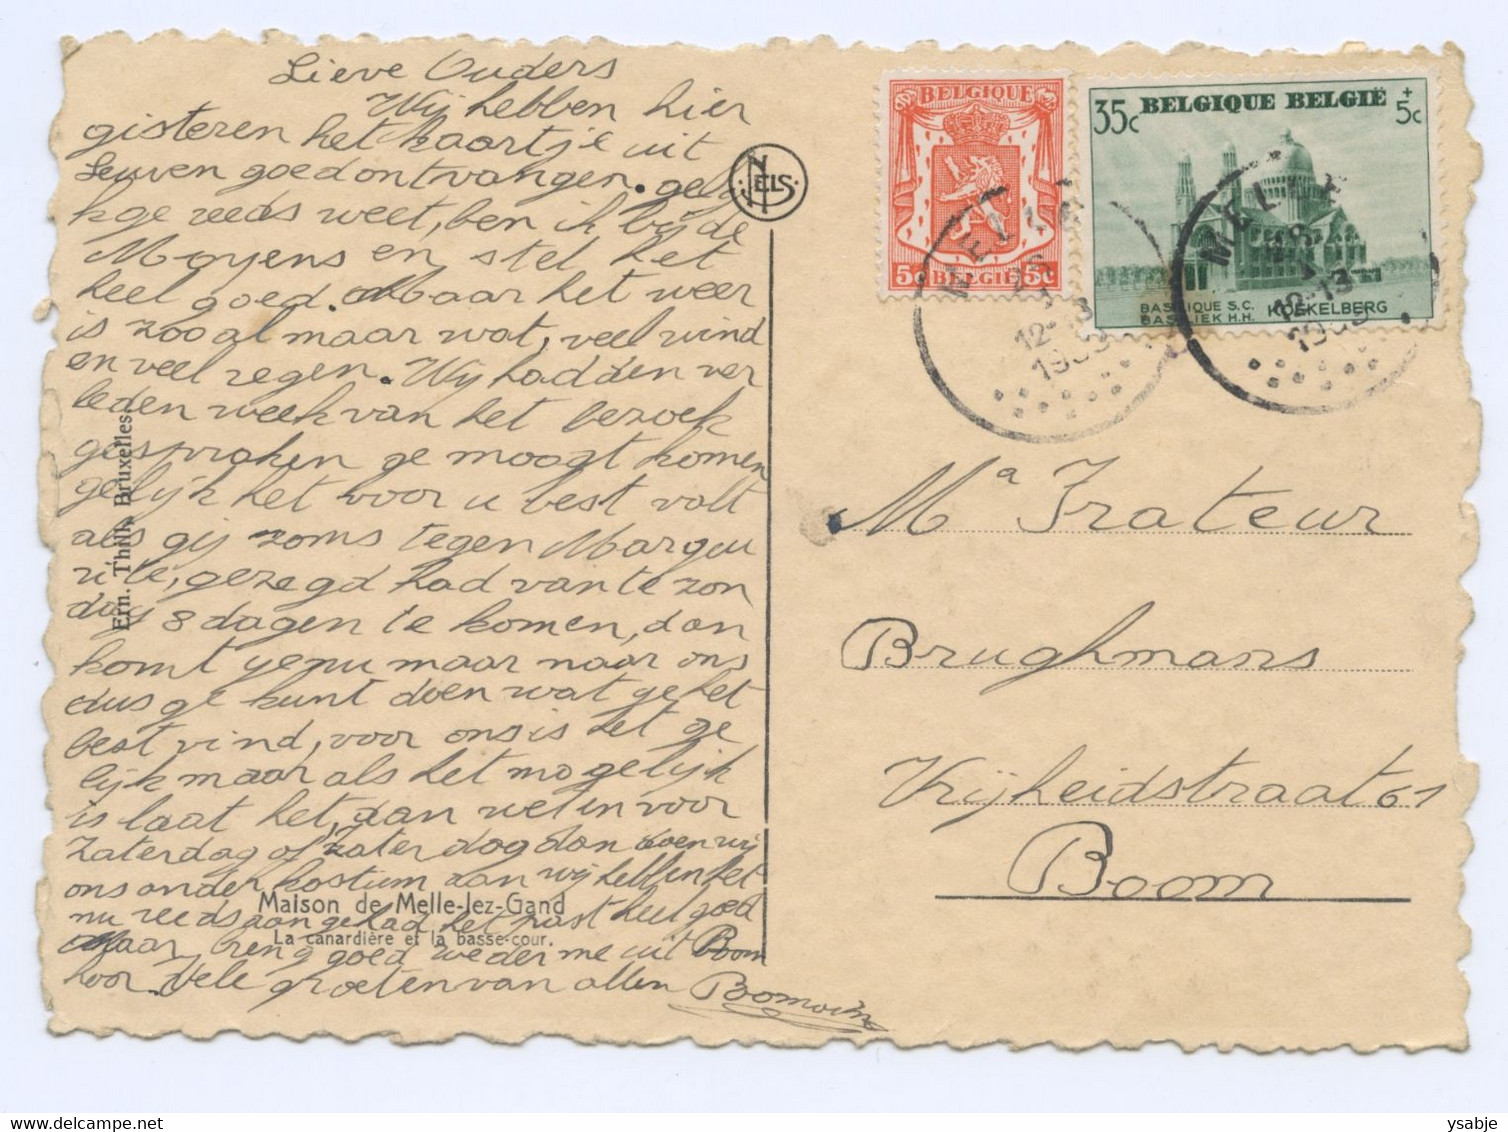 Lieve Ouders
Wij hebben hier
gisteren het kaartje uit
Leuven goed ontvangen. gelij
kge reeds weet, ben ik bij de
Moyens en stel het
heel goed. Maar het weer
is zoo al maar wat, veel wind
en veel regen. Wij hadden ver
leden week van het bezoek
gesproken ge moogt komen
gelijk het voor u best valt
als gij zoms tegen Margue
rite, gezegd had van te zon
dag 8 dagen te komen, dan
komt ge nu maar naar ons
dus ge kunt doen wat ge het
best vind, voor ons is het ge
lijk maar als het mogelijk
is laat het, dan weten voor
Zaterdag of zaterdag dan doen wij
ons ander kostum aan wij hebben het
nu reeds aangehad het past heel goed
Maar breng goed weder mee uit Boom
hoor. Vele groeten van allen
NELS
Ern. Thill, Bruxelles
Maison de Melle-lez-Gand
La canardière et la basse-cour.
BELGIQUE
5c BELGIË 5c
35c BELGIQUE BELGIË + 5c
BASILIQUE S.C. KOEKELBERG
BASILIEK H.H.
MELLE
12-13
MELLE
12-13
Ma Frateur
Brughmans
Vrijheidstraat 61
Boom
ysabje